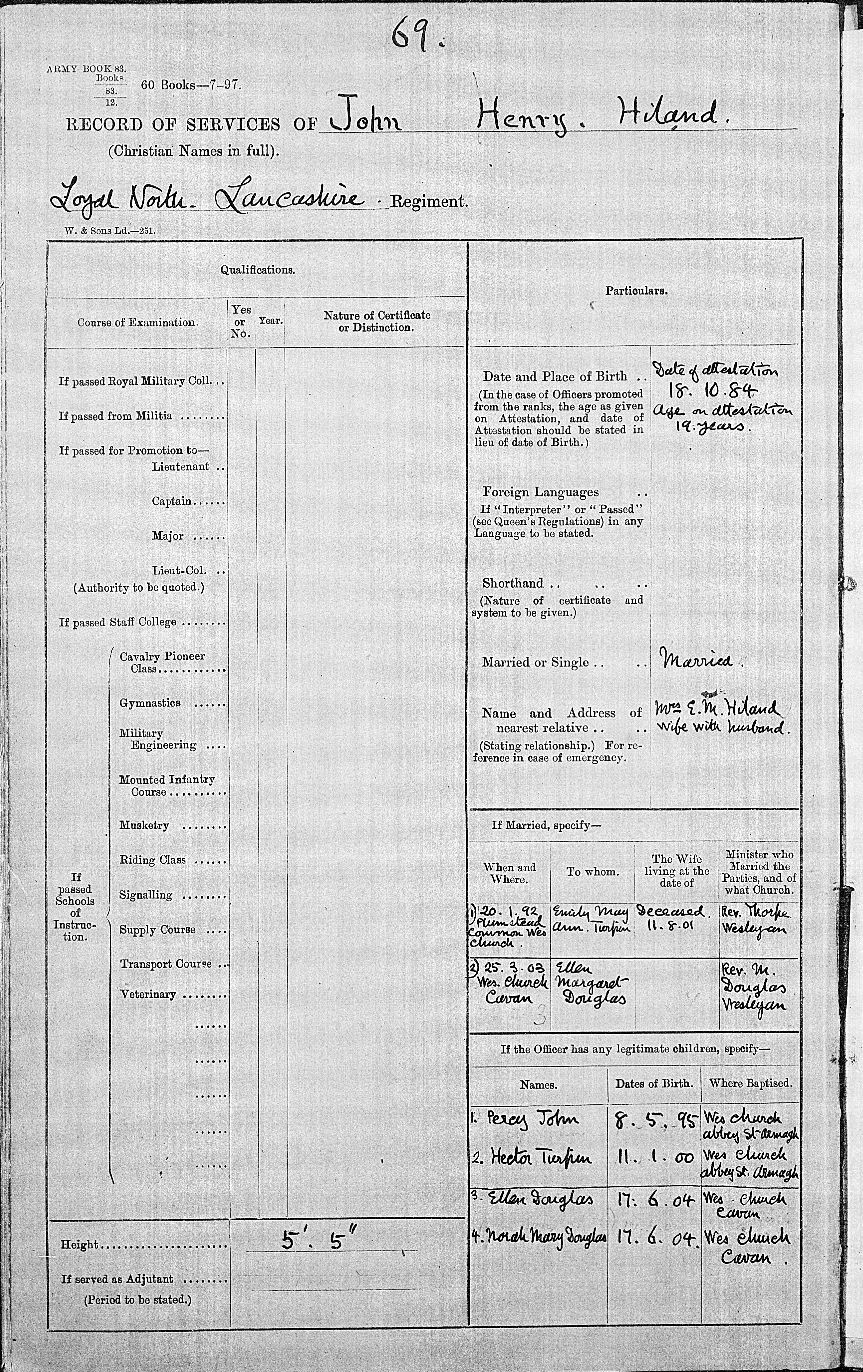 69.
ARMY BOOK 83.
Books
83.
12.
60 Books—7-97.
RECORD OF SERVICES OF John Henry. Hiland.
(Christian Names in full).
Loyal North. Lancashire. Regiment.
W. & Sons Ld.—251.
Qualifications.
Course of Examination.
Yes or No.
Year.
Nature of Certificate or Distinction.
If passed Royal Military Coll...
If passed from Militia ........
If passed for Promotion to—
Lieutenant ..
Captain......
Major ......
Lieut-Col. ..
(Authority to be quoted.)
If passed Staff College ........
If passed Schools of Instruction.
Cavalry Pioneer
Class............
Gymnastics ......
Military
Engineering ....
Mounted Infantry
Course..........
Musketry ........
Riding Class ......
Signalling ........
Supply Course ....
Transport Course ...
Veterinary ........
......
......
......
......
......
Height...................... 5'. 5"
If served as Adjutant ........
(Period to be stated.)
Particulars.
Date and Place of Birth ..
(In the case of Officers promoted
from the ranks, the age as given
on Attestation, and date of
Attestation should be stated in
lieu of date of Birth.)
Date of attestation
18. 10. 84
Age on attestation
19. years.
Foreign Languages ..
If "Interpreter" or "Passed"
(see Queen's Regulations) in any
Language to be stated.
Shorthand .. .. ..
(Nature of certificate and
system to be given.)
Married or Single .. .. Married.
Name and Address of
nearest relative .. ..
(Stating relationship.) For re-
ference in case of emergency.
Mrs E. M. Hiland
Wife with husband.
If Married, specify—
When and Where.
To whom.
The Wife living at the date of
Minister who Married the Parties, and of what Church.
1) 20. 1. 92 Emily May Deceased. Rev. Thorpe
Plumstead Ann. Turpin 11. 8. 01 Wesleyan
Common Wes
Church.
2) 25. 3. 03 Ellen Rev. M.
Wes. Church Margaret Douglas
Cavan Douglas Wesleyan
If the Officer has any legitimate children, specify—
Names. Dates of Birth. Where Baptised.
1. Percy John 8. 5. 95 Wes Church
abbey St Armagh
2. Hector Turpin 11. 1. 00 Wes Church
abbey St. Armagh
3. Ellen Douglas 17. 6. 04 Wes. Church
Cavan
4. Norah Mary Douglas 17. 6. 04. Wes Church
Cavan.